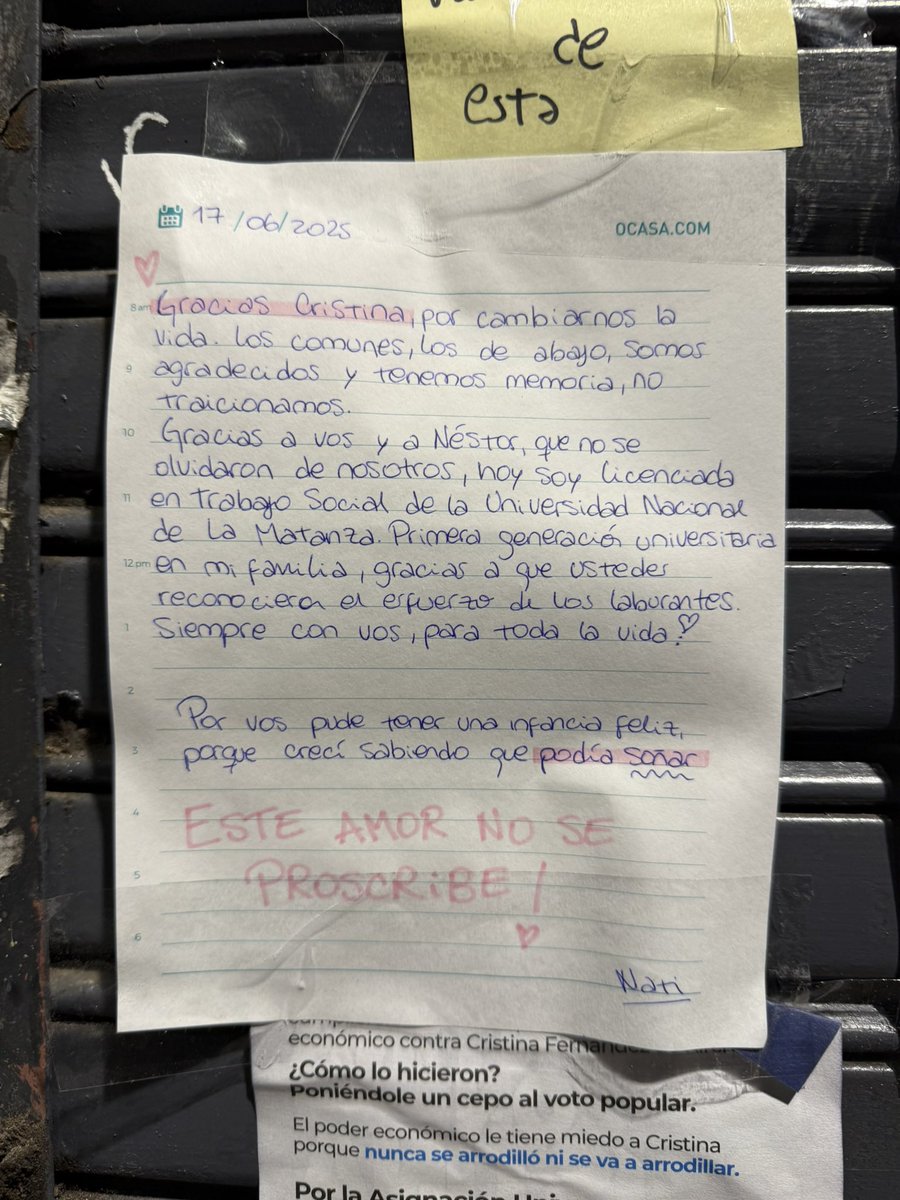 de
esta
17/06/2025
OCASA.COM
8am Gracias Cristina, por cambiarnos la
vida. Los comunes, los de abajo, somos
9 agradecidos y tenemos memoria, no
traicionamos.
10 Gracias a vos y a Néstor, que no se
olvidaron de nosotros, hoy soy licenciada
11 en trabajo Social de la Universidad Nacional
de La Matanza. Primera generación universitaria
12pm en mi familia, gracias a que ustedes
reconociera el esfuerzo de los laburantes.
1 Siempre con vos, para toda la vida!
2
Por vos pude tener una infancia feliz,
3 porque crecí sabiendo que podía soñar
4 ESTE AMOR NO SE
5 PROSCRIBE!
6
Nati
económico contra Cristina
¿Cómo lo hicieron?
Poniéndole un cepo al voto popular.
El poder económico le tiene miedo a Cristina
porque nunca se arrodilló ni se va a arrodillar.
Por la Asignación